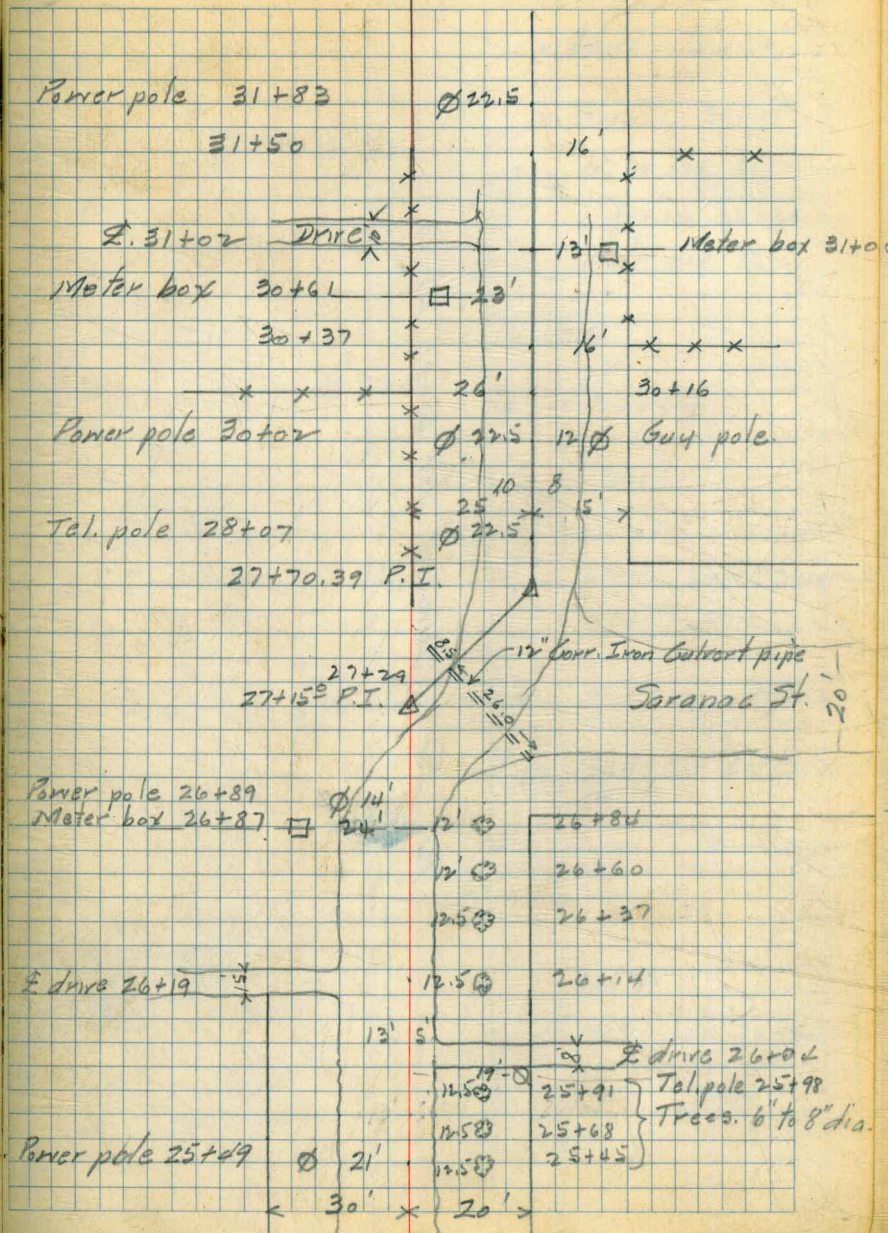 Power pole 31+83 Ø 22.5
31+50 16'
℄. 31+02 Drive 13' Meter box 31+0
Meter box 30+61 23'
30+37 16'
26' 30+16
Power pole 30+02 Ø 22.5 12 Ø Guy pole.
10 8
25' 15'
Tel. pole 28+07 Ø 22.5
27+70.39 P.I.
8.5
12" Corr. Iron Culvert pipe
27+29
27+15 P.I. 26.0 Saranac St. 20'
Power pole 26+89 Ø 14'
Meter box 26+87 24' 12' 26+84
12' 26+60
12.5 26+37
℄ drive 26+19 15' 12.5 26+14
13' 5'
8' ℄ drive 26+04
19' Tel. pole 25+98
12.5 25+91 Trees. 6" to 8" dia.
12.5 25+68
Power pole 25+49 Ø 21' 12.5 25+45
30' 20'